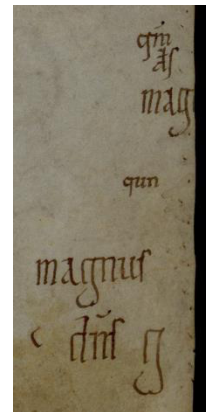 mag
qun
magnus
dns g